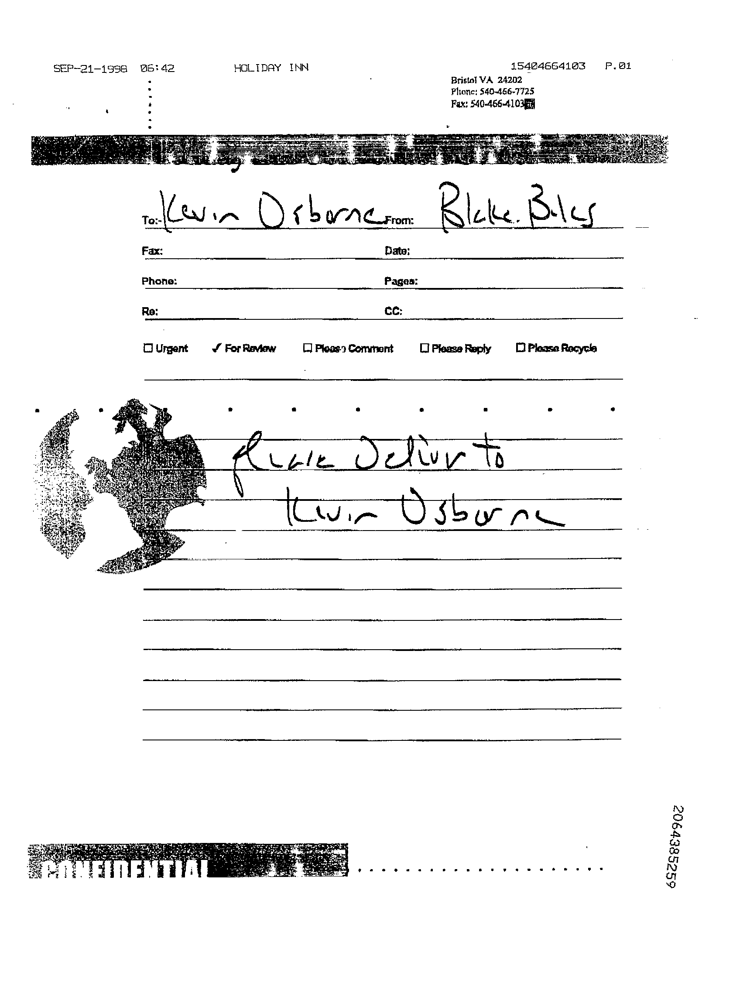 SEP-21-1998 06:42 HOLIDAY INN 15404664103 P.01
Bristol VA 24202
Phone: 540-466-7725
Fax: 540-466-4103
To: Kevin Osborne From: Blake Biles
Fax: Date:
Phone: Pages:
Re: CC:
☐ Urgent ✓ For Review ☐ Please Comment ☐ Please Reply ☐ Please Recycle
Please Deliver to
Kevin Osborne
2064385259
CONFIDENTIAL